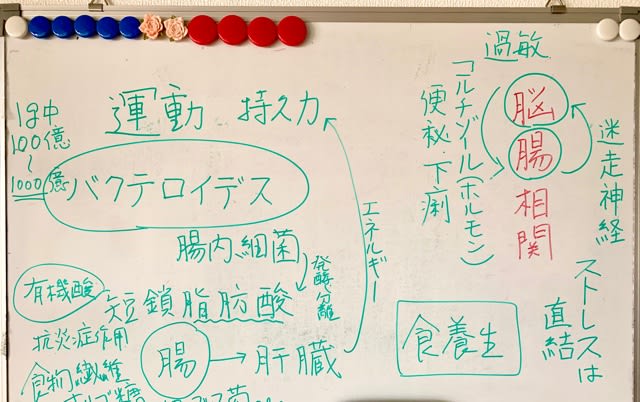 1g中
100億
〜
1000億
運動 持久力
バクテロイデス
腸内細菌
発酵分離
エネルギー
有機酸
短鎖脂肪酸
抗炎症作用
腸→肝臓
食物繊維
オリゴ糖
過敏
脳
腸
相
関
コルチゾール(ホルモン)
便秘 下痢
迷走神経
ストレスは
直結
食養生